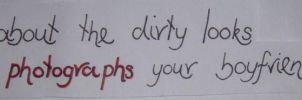 about the dirty looks
photographs your boyfrien